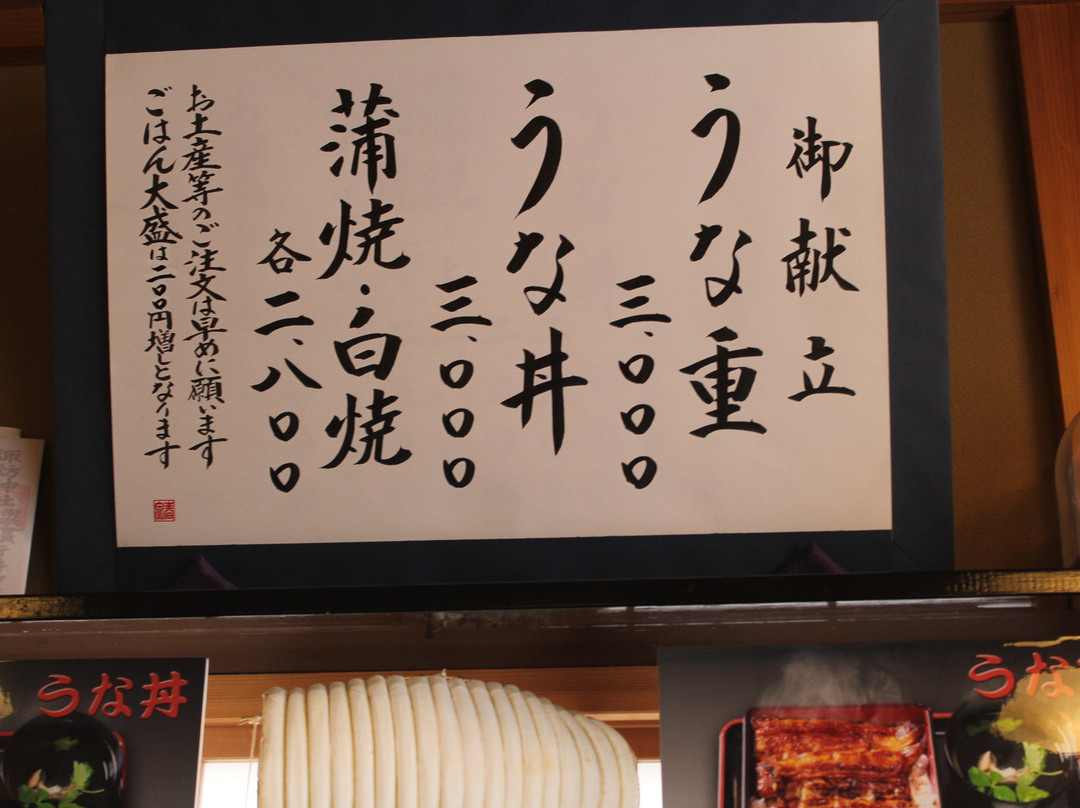 御献立
うな重
三、〇〇〇
うな丼
三、〇〇〇
蒲焼・白焼
各二、八〇〇
お土産等のご注文は早めに願います
ごはん大盛は二〇〇円増しとなります
うな丼
うな